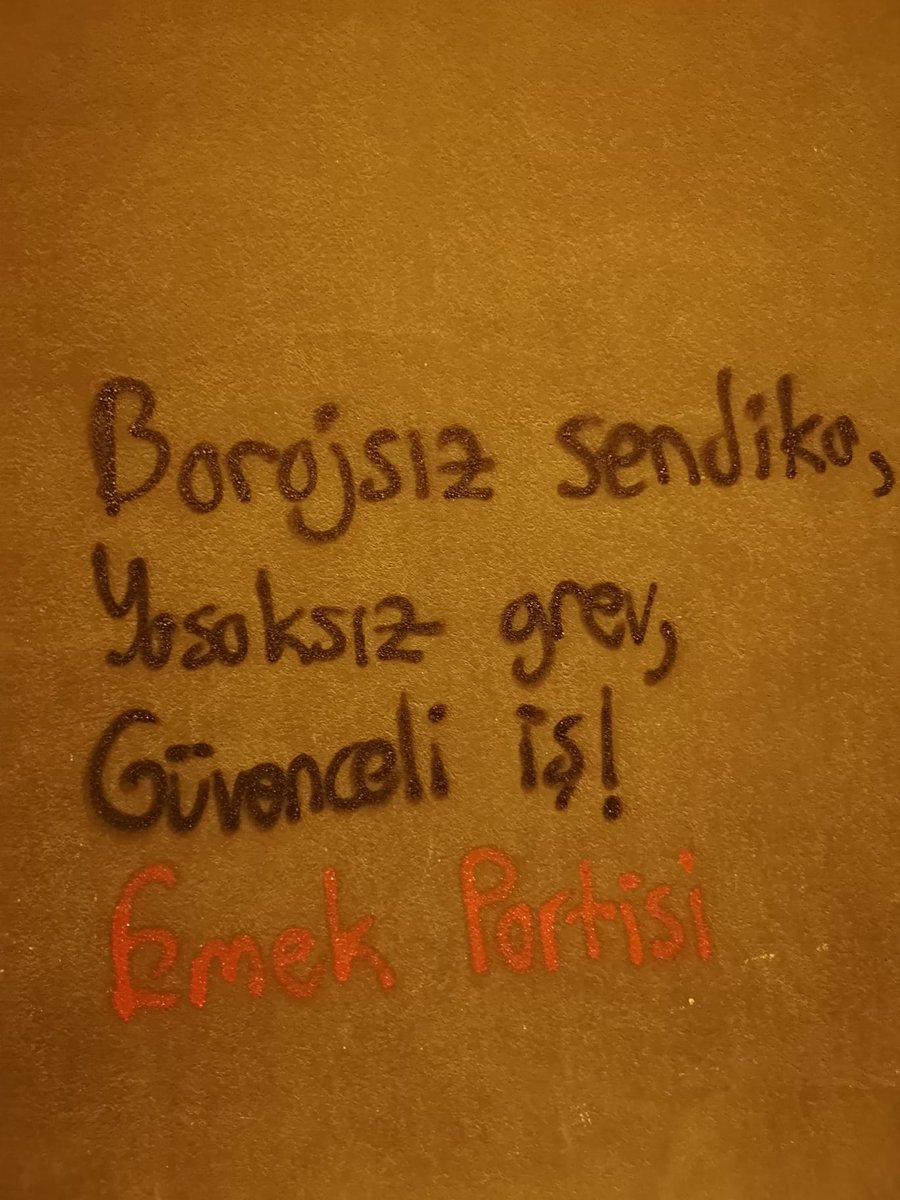 Barajsız sendika,
Yasaksız grev,
Güvenceli iş!
Emek Partisi